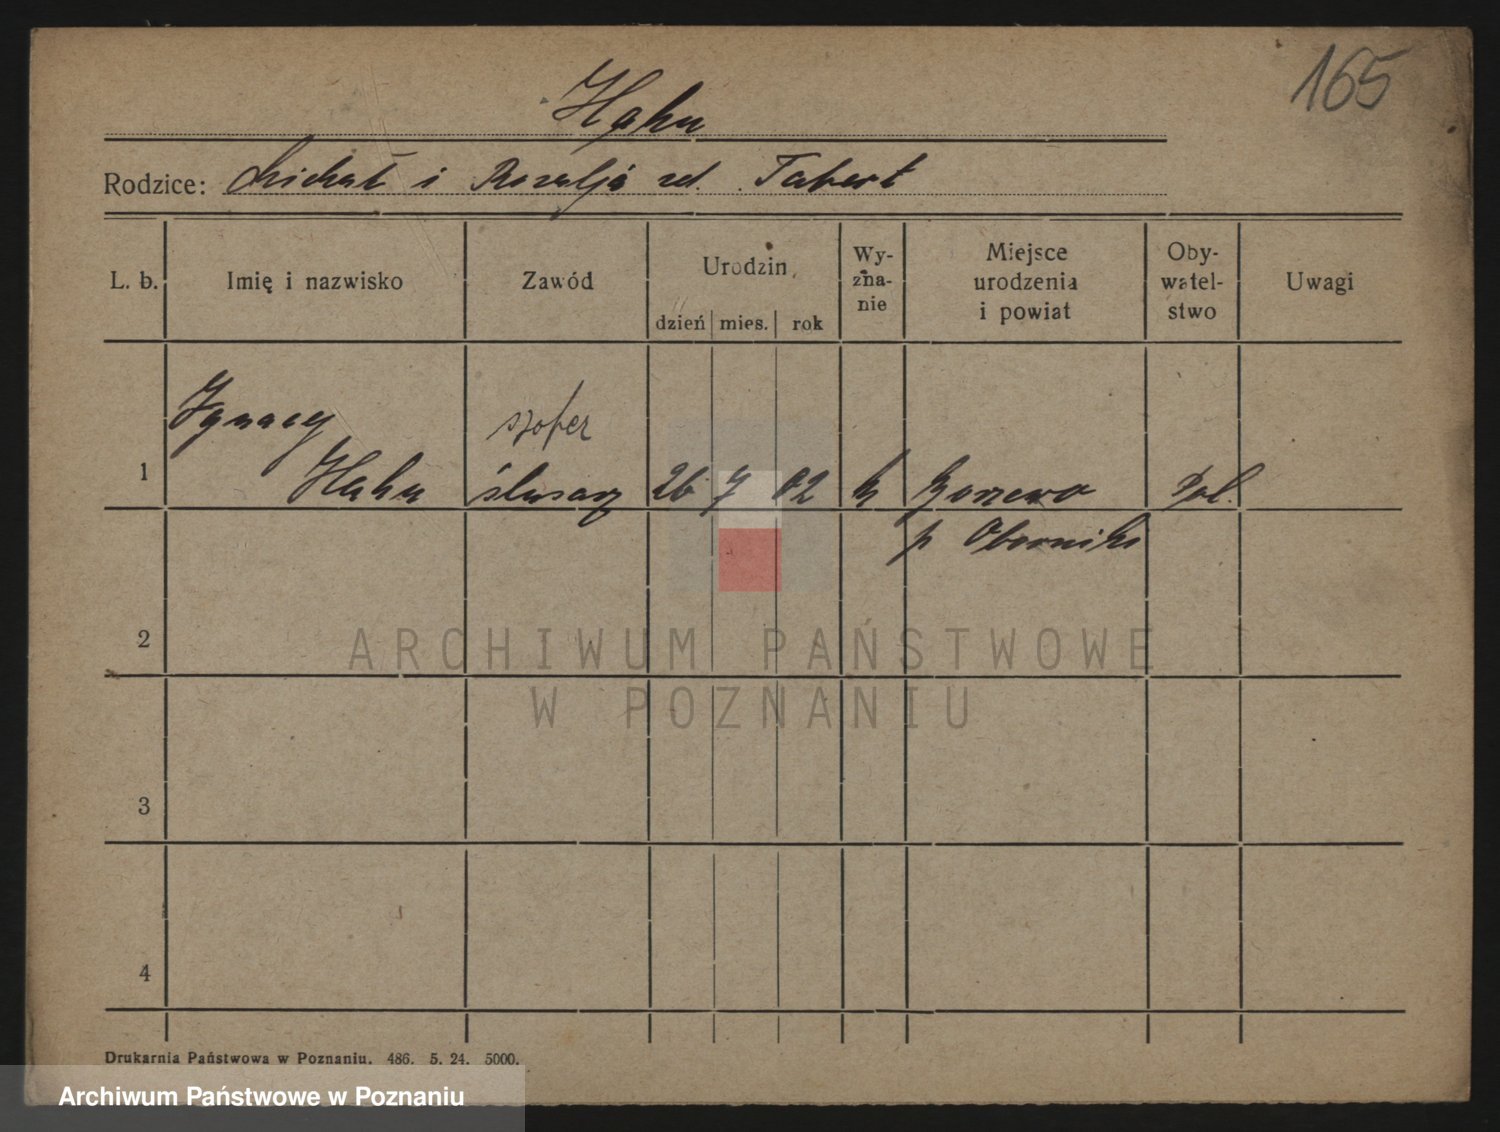 165
Hahn
Rodzice: Michał i Rozalja zd. Tabert
L. b. Imię i nazwisko Zawód Urodzin dzień mies. rok Wy-zna-nie Miejsce urodzenia i powiat Oby-watel-stwo Uwagi
Ignacy szofer
1 Hahn ślusarz 26 7 02 k Pol.
p Oborniki
2
ARCHIWUM PAŃSTWOWE
W POZNANIU
3
4
Drukarnia Państwowa w Poznaniu. 486. 5. 24. 5000.
Archiwum Państwowe w Poznaniu